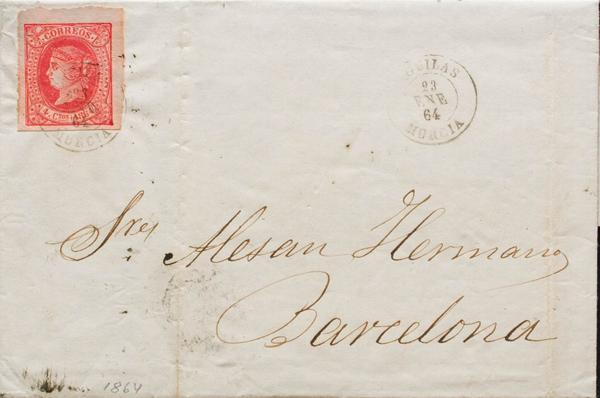 CORREOS
4 CTOS
MURCIA
GUILAS
23
ENE
64
MURCIA
Sres Alesan Hermanos
Barcelona
1864